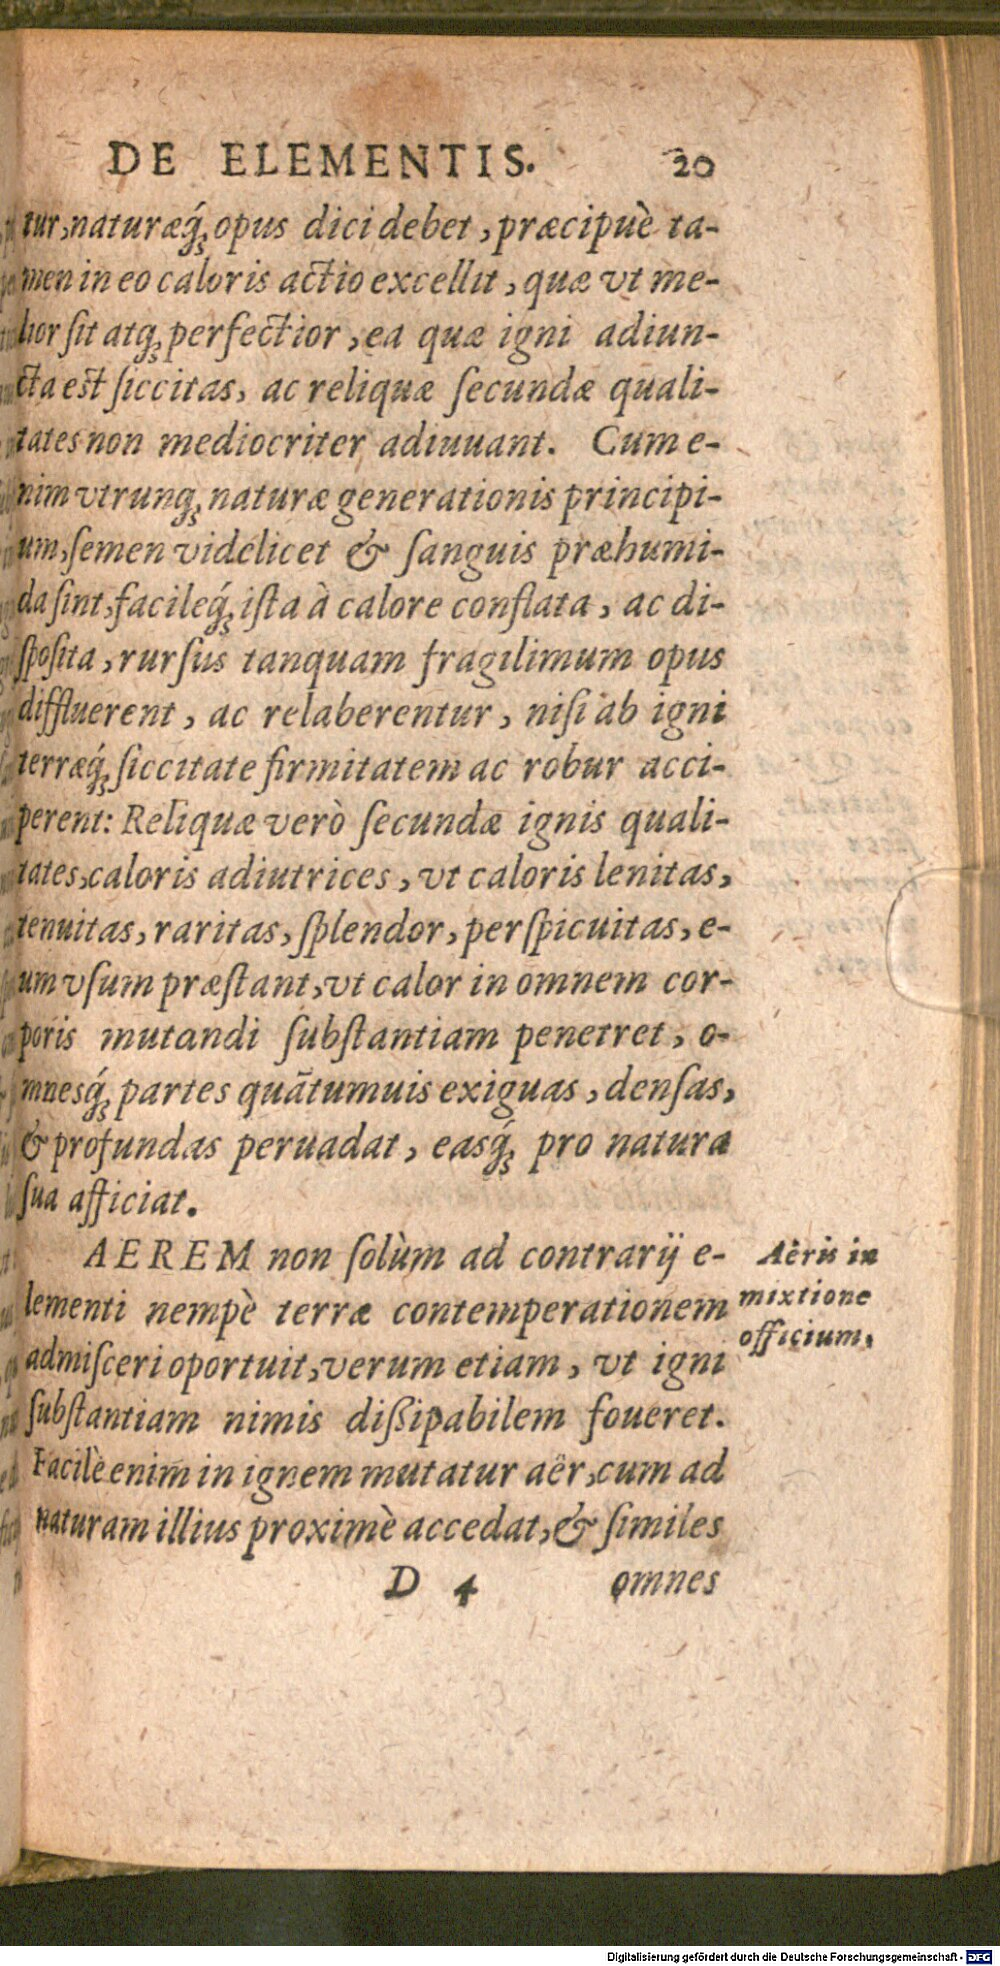 DE ELEMENTIS. 20
tur, naturæq́; opus dici debet, præcipuè ta-
men in eo caloris actio excellit, quæ vt me-
lior sit atq; perfectior, ea quæ igni adiun-
cta est siccitas, ac reliquæ secundæ quali-
tates non mediocriter adiuuant. Cum e-
nim vtrunq; naturæ generationis principi-
um, semen videlicet & sanguis præhumi-
da sint, facileq́; ista à calore conflata, ac di-
sposita, rursus tanquam fragilimum opus
diffluerent, ac relaberentur, nisi ab igni
terræq́; siccitate firmitatem ac robur acci-
perent: Reliquæ verò secundæ ignis quali-
tates, caloris adiutrices, vt caloris lenitas,
tenuitas, raritas, splendor, perspicuitas, e-
um vsum præstant, vt calor in omnem cor-
poris mutandi substantiam penetret, o-
mnesq́; partes quãtumuis exiguas, densas,
& profundas peruadat, easq́; pro natura
sua afficiat.
AEREM non solùm ad contrarij e-
lementi nempè terræ contemperationem
admisceri oportuit, verum etiam, vt igni
substantiam nimis dißipabilem foueret.
Facilè enim in ignem mutatur aër, cum ad
naturam illius proximè accedat, & similes
D 4 omnes
Aëris in
mixtione
officium.
Digitalisierung gefördert durch die Deutsche Forschungsgemeinschaft - DFG